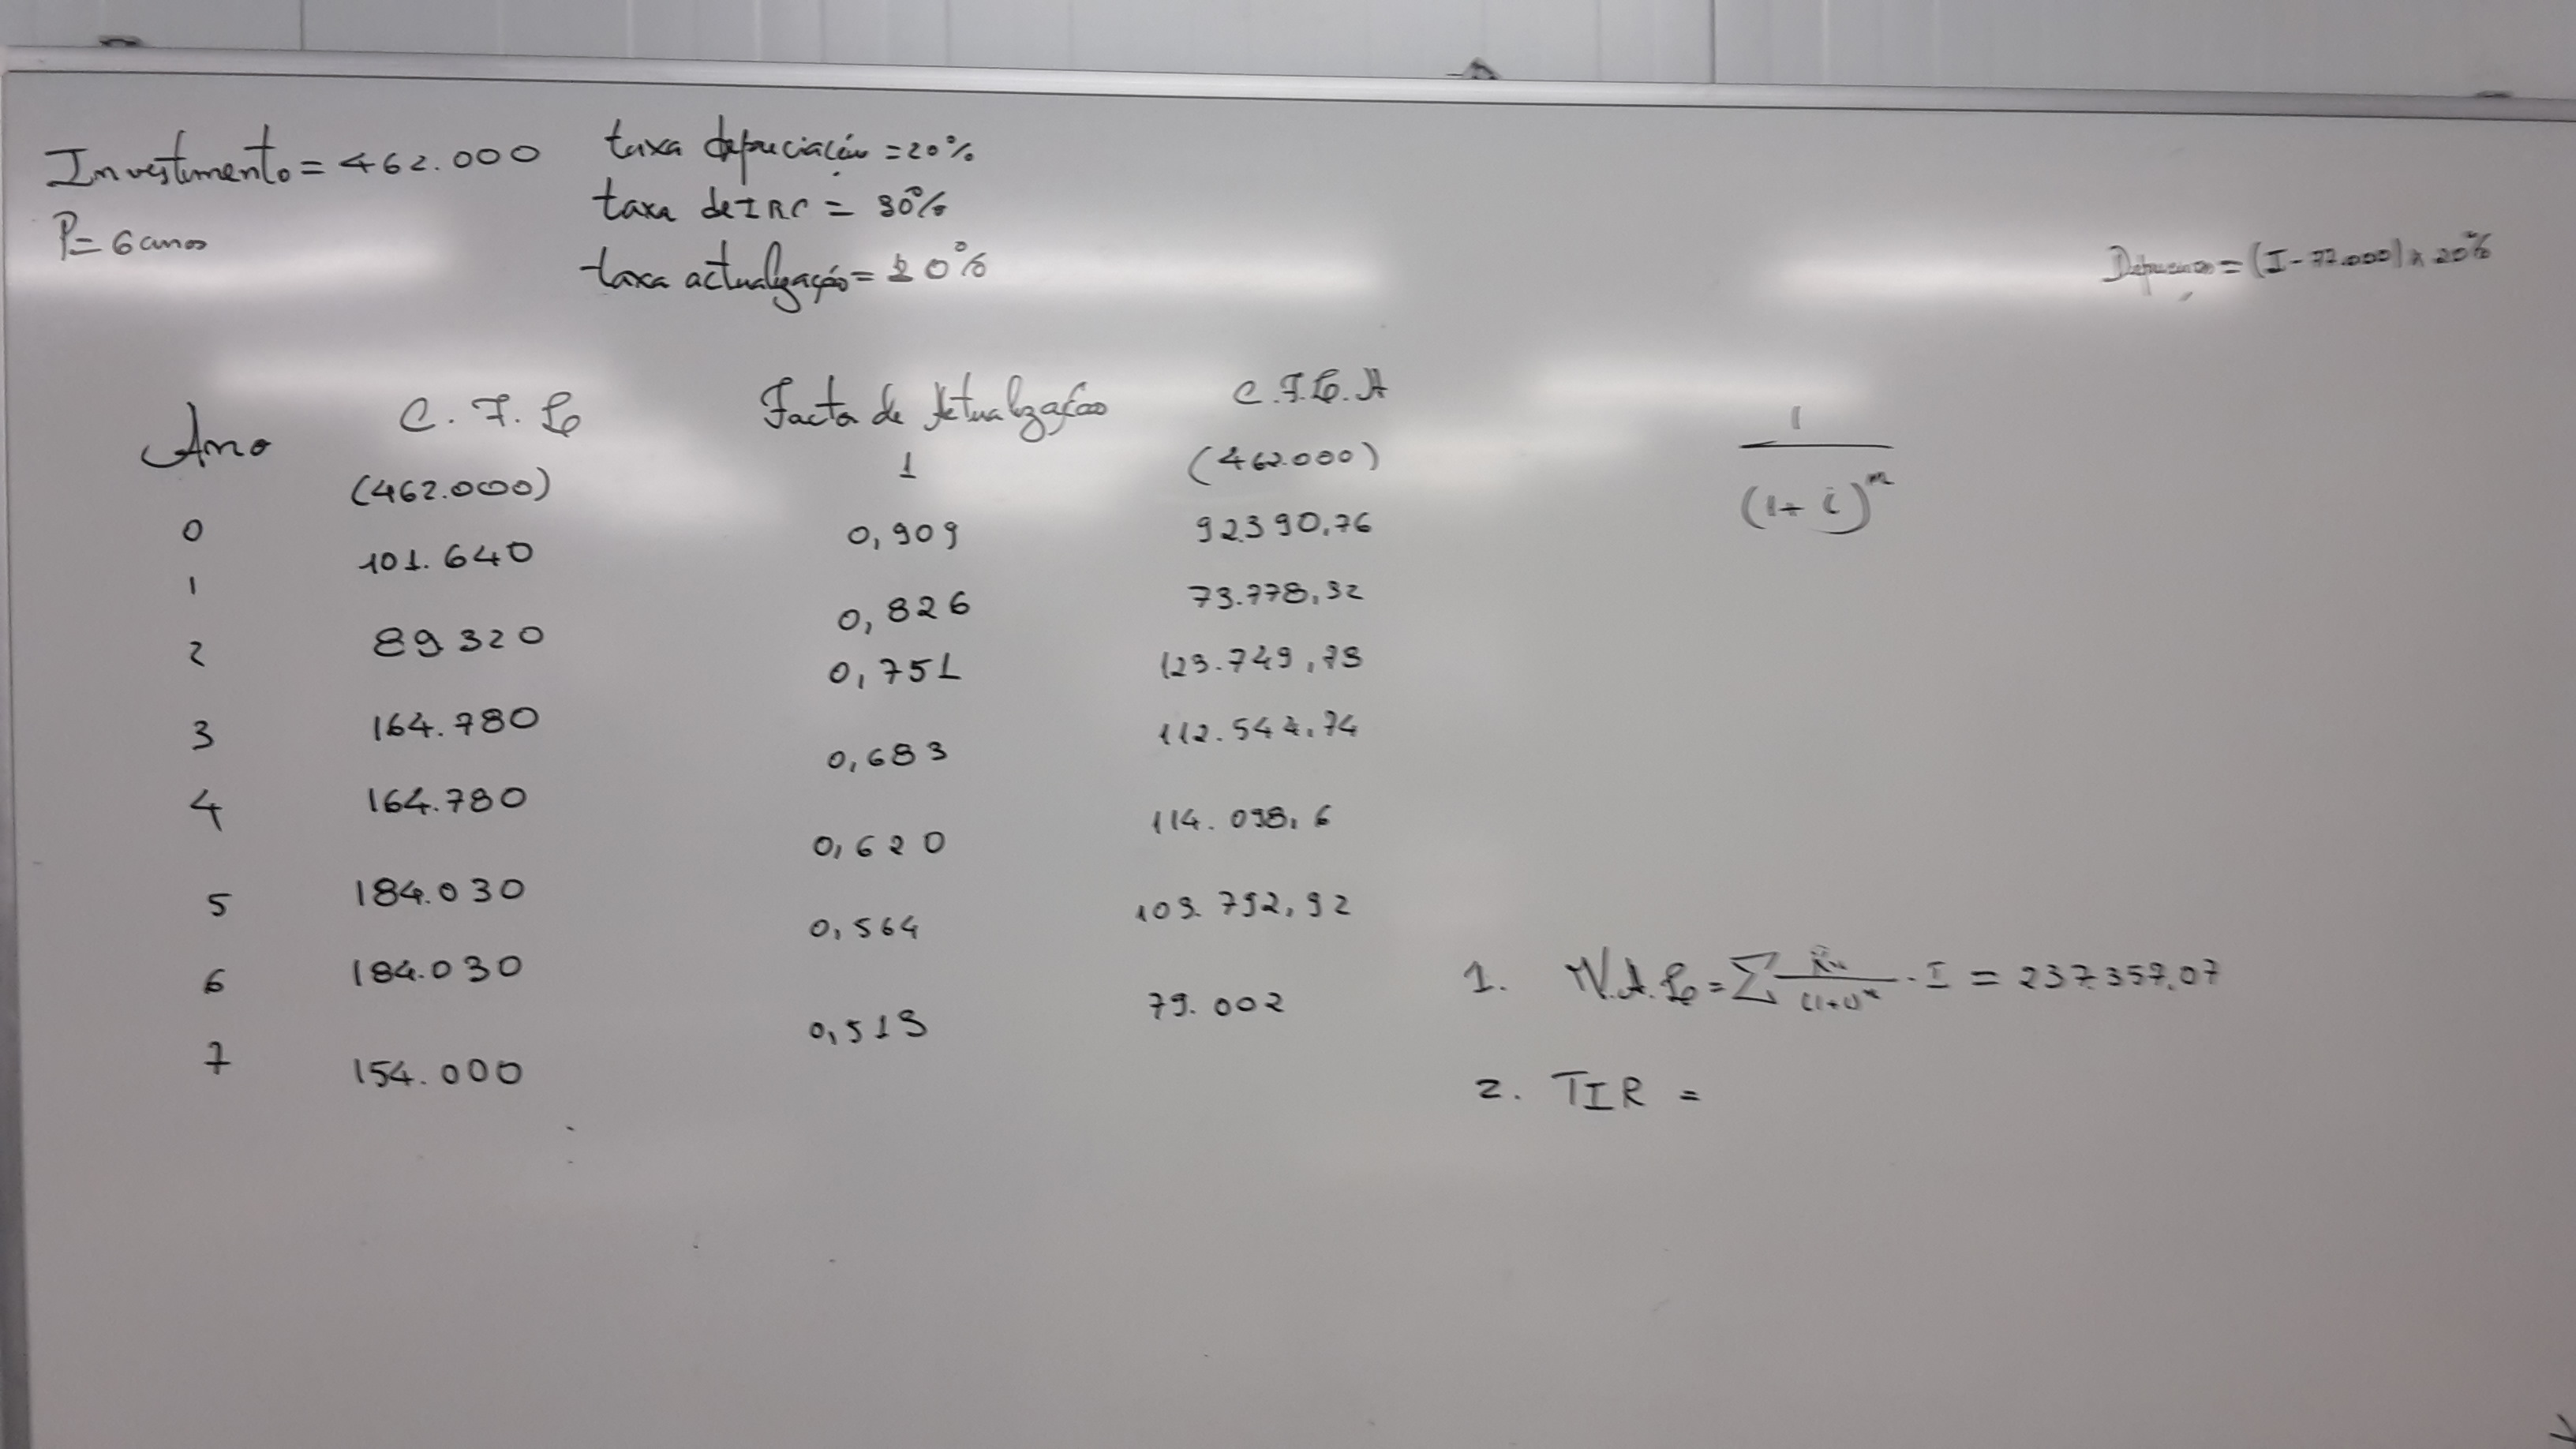 Investimento = 462.000
P= 6 anos
taxa depreciação = 20%
taxa de IRC = 30%
taxa actualização = 10%
Depreciação = (I - 77.000) x 20%
Ano C. F. L Factor de Actualização C.F.L.A
0 (462.000) 1 (462.000)
1 101.640 0,909 92390,76
2 89320 0,826 73.778,32
3 164.780 0,751 123.749,78
4 164.780 0,683 112.544,74
5 184.030 0,620 114.098,6
6 184.030 0,564 103.792,92
7 154.000 0,513 79.002
1
(1+ i)^n
1. V.A.L = ∑ (1+i)^n - I = 237.357,07
2. TIR =